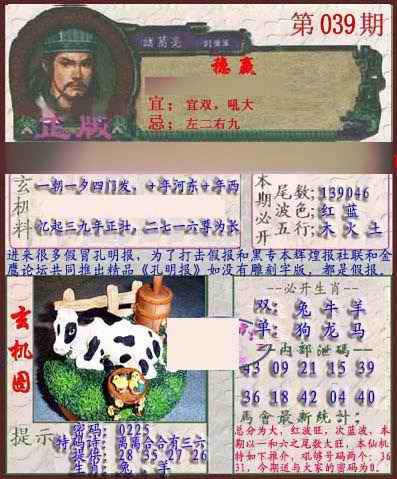 第039期
諸葛亮
穩赢
宜;宜双,吼大
忌;左二右九
正版
玄机料
一朝一夕四门发,十年河东十年西
忆起三九年正社,二七一六尊为长
本期必开
尾数;139046
波色;红 蓝
五行;木 火 土
进来很多假冒孔明报,为了打击假报和黑专本辉煌报社联和金
鹰论坛共同推出精品《孔明报》如没有雕刻字版,都是假报。
玄机图
--必开生肖--
双:兔 牛 羊
单:狗 龙 马
内部泄码
43 09 21 15 39
36 18 42 04 40
馬會最新統計:
总分为大,红波旺,次蓝波,本
期以一和六之尾数大旺,本仙机
特如下推介,吼够号码两个:36
31,今期送与大家的密码为0.
提示
密码:0225
特码诗:离离合合有三六
提供:28 35 27 26
生肖:兔、羊